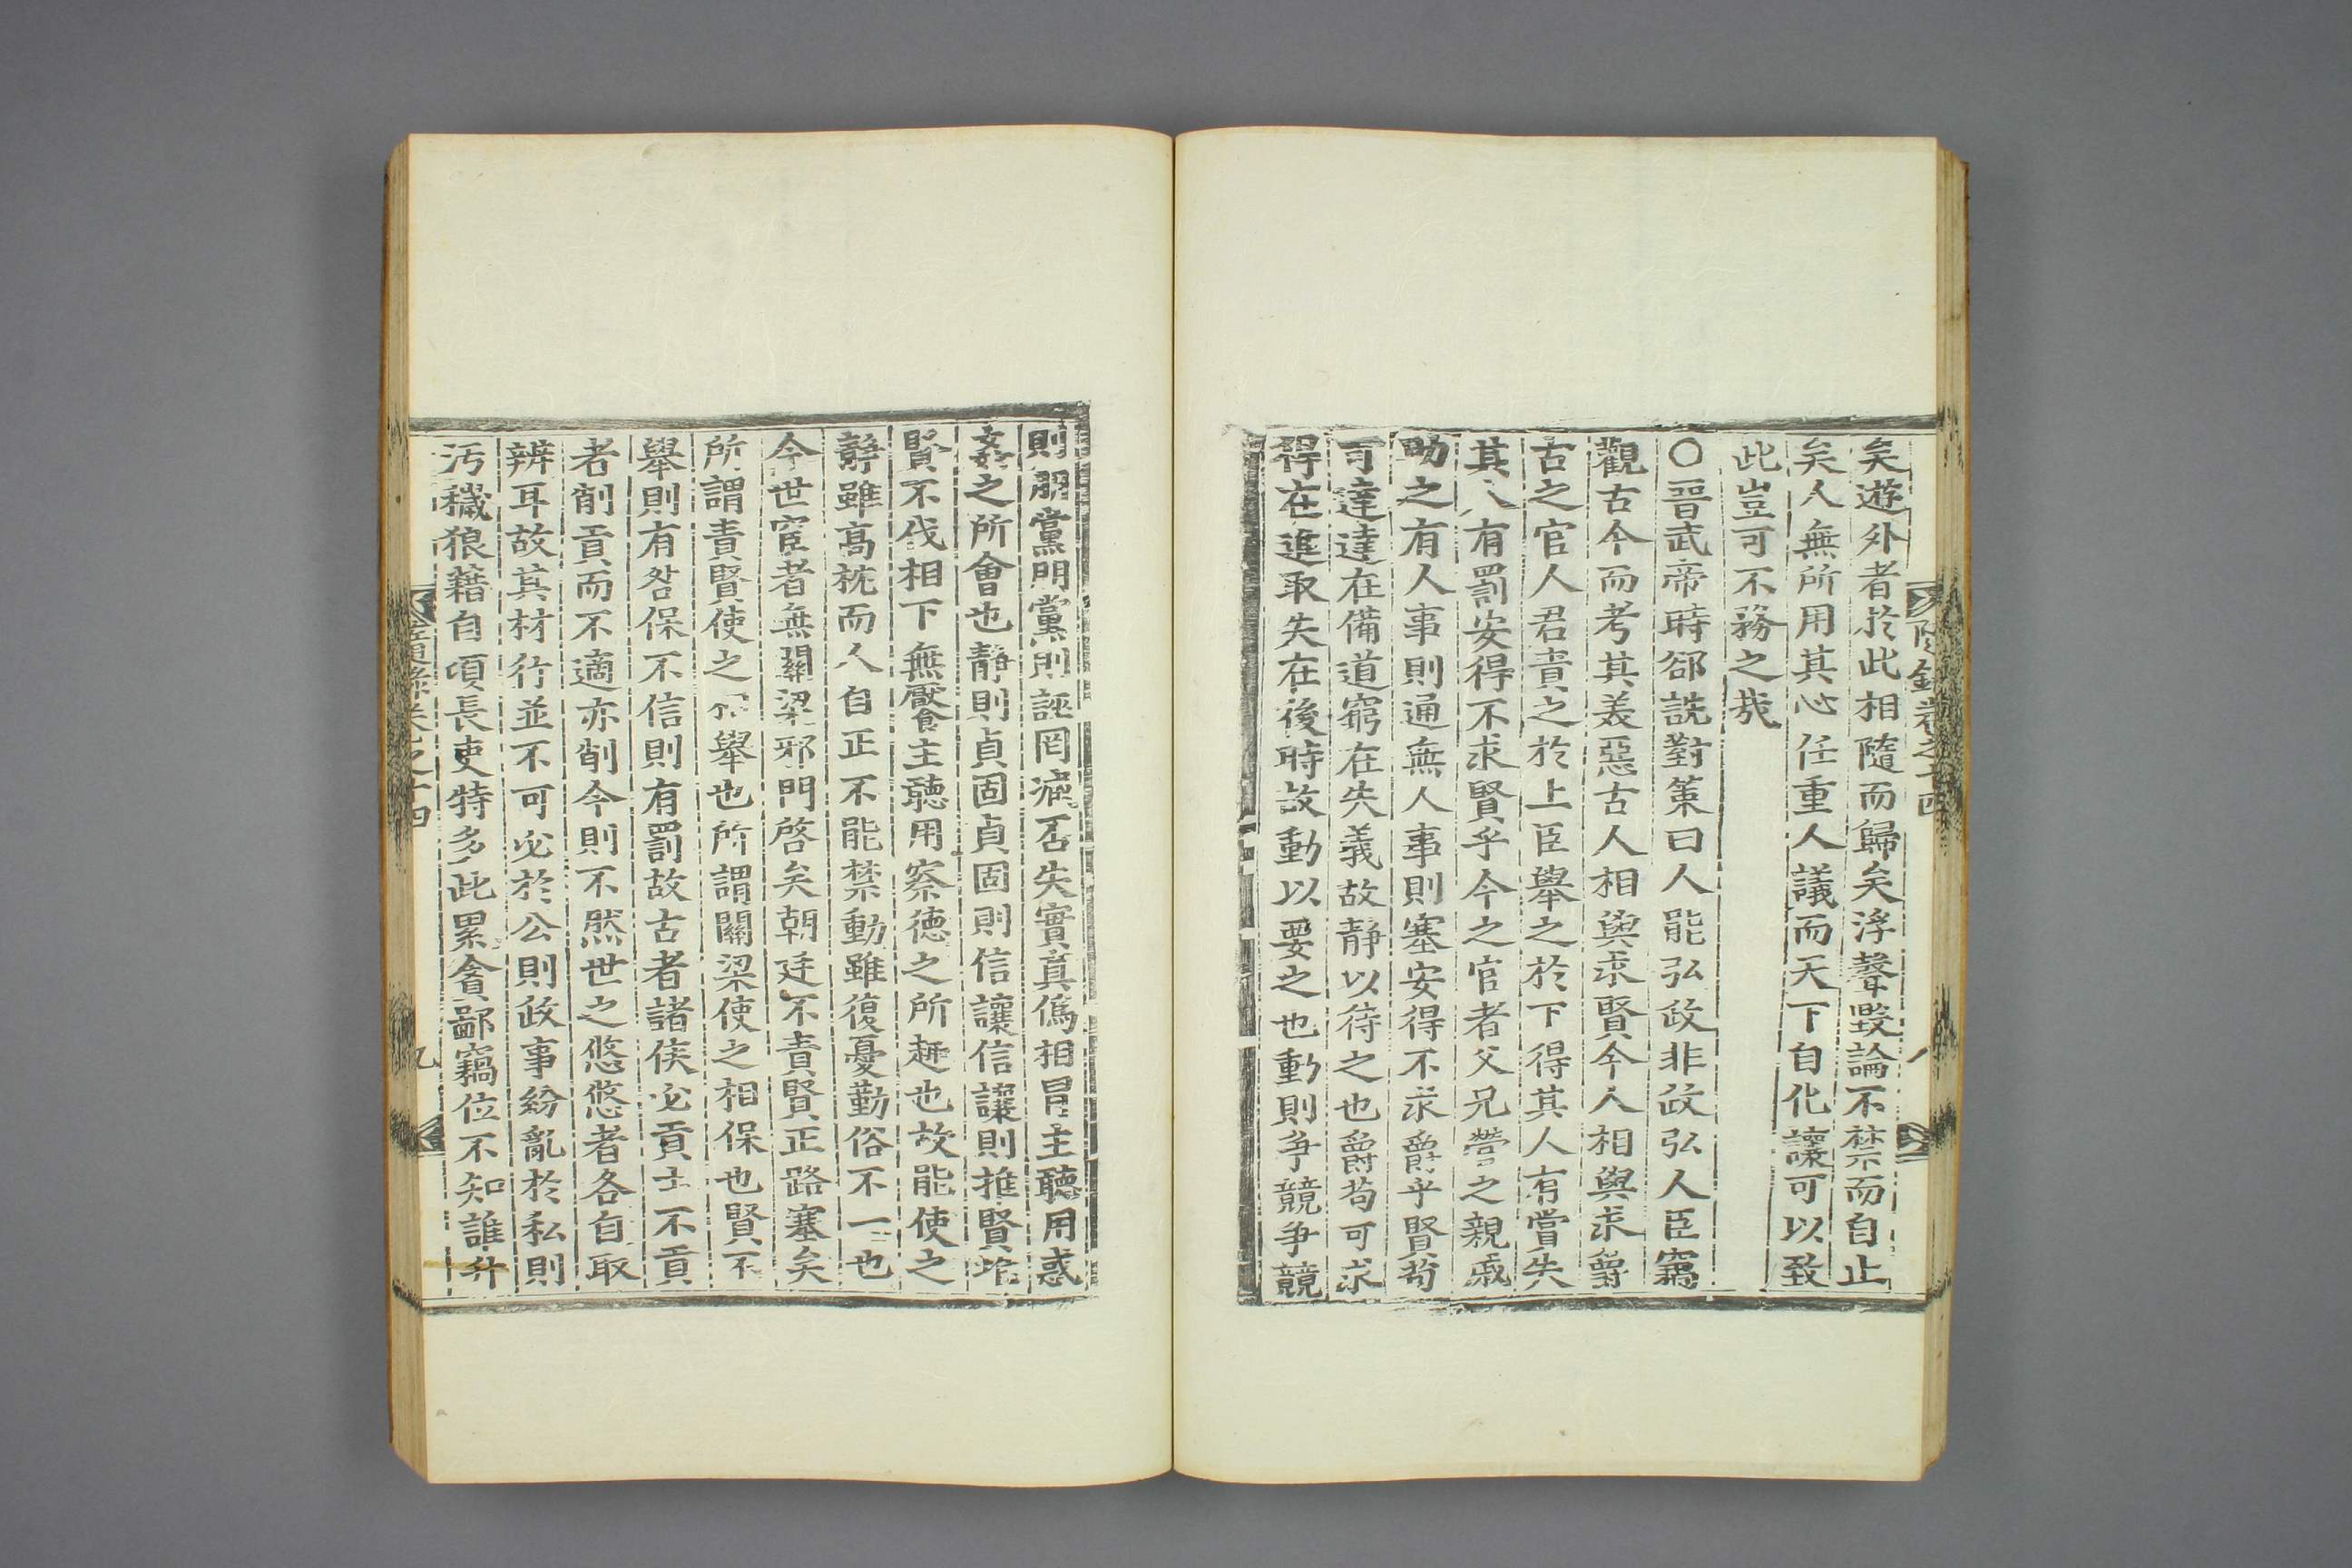 矣遊外者於此相隨而歸矣浮聲毀論不禁而自止
矣人無所用其心任重人議而天下自化讓可以致
此豈可不務之哉
○晉武帝時郤詵對策曰人能弘政非政弘人臣竊
觀古今而考其美惡古人相與求賢今人相與求爵
古之官人君責之於上臣舉之於下得其人有賞失
其人有罰安得不求賢乎今之官者父兄營之親戚
助之有人事則通無人事則塞安得不求爵乎賢苟
可達達在備道窮在失義故靜以待之也爵苟可求
得在進取失在後時故動以要之也動則爭競爭競
則朋黨朋黨則誣罔臧否失實眞僞相冒主聽用惑
姦之所會也靜則貞固貞固則信讓信讓則推賢推
賢不伐相下無饜主聽用察德之所趣也故能使之
靜雖高枕而人自正不能禁動雖復憂勤俗不一也
今世宦者無關梁邪門啓矣朝廷不責賢正路塞矣
所謂責賢使之相舉也所謂關梁使之相保也賢不
舉則有咎保不信則有罰故古者諸侯必貢士不貢
者削貢而不適亦削今則不然世之悠悠者各自取
辨耳故其材行並不可必於公則政事紛亂於私則
汚穢狼藉自頃長吏特多此累貪鄙竊位不知誰升
卷之十四
八
九